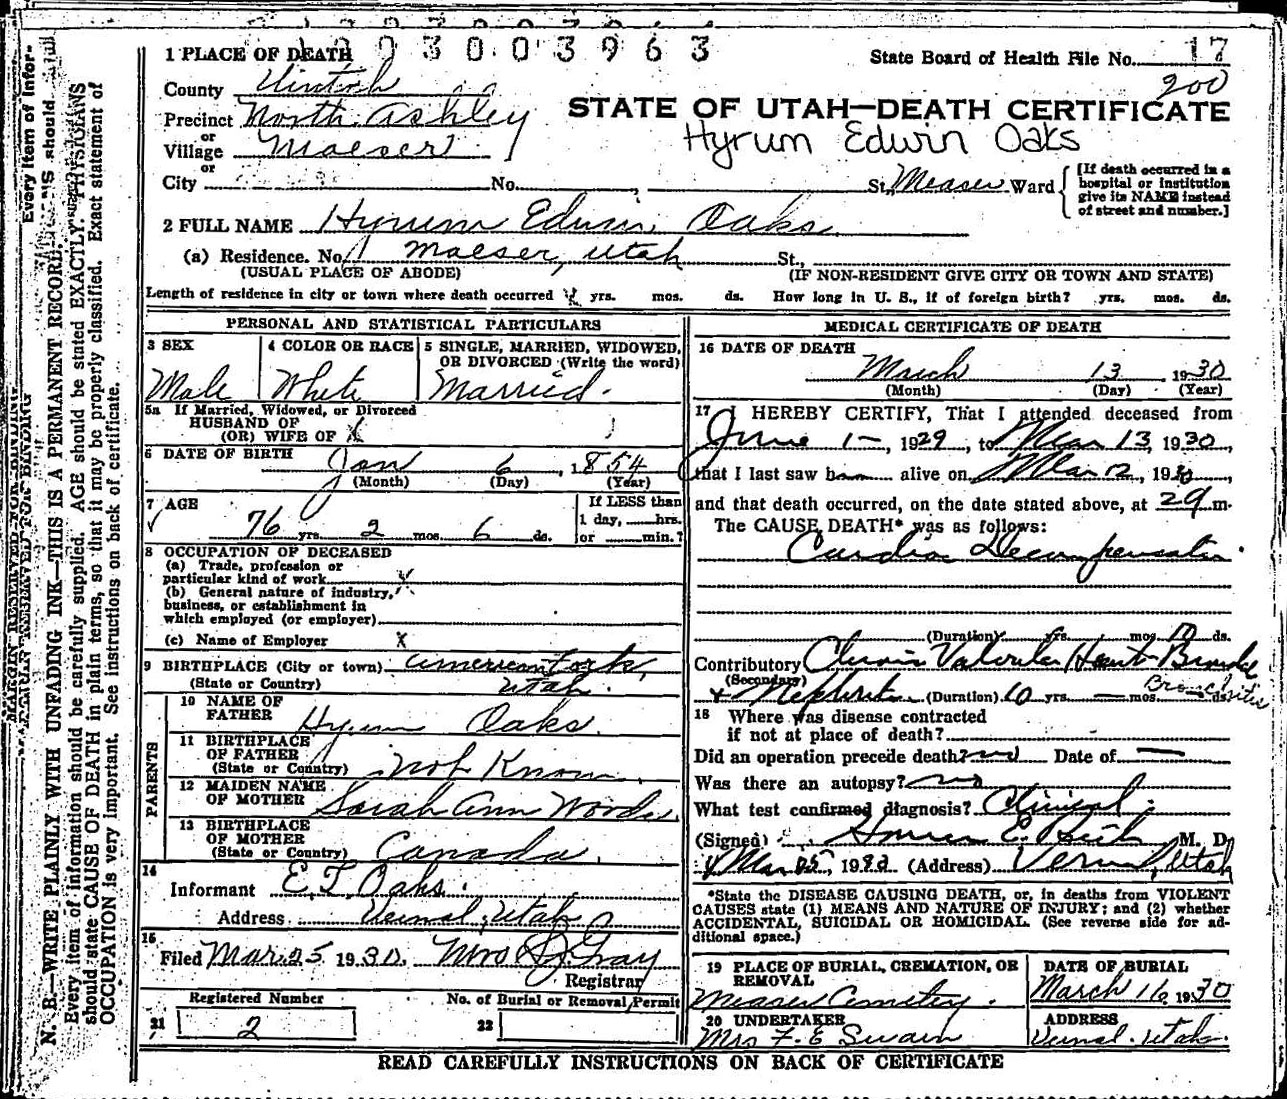 1930003963
1 PLACE OF DEATH
State Board of Health File No. 17
200
County Uintah
STATE OF UTAH—DEATH CERTIFICATE
Precinct North Ashley
Hyrum Edwin Oaks
or
Village Maeser
or
City No. St. Measer Ward
[If death occurred in a hospital or institution give its NAME instead of street and number.]
2 FULL NAME Hyrum Edwin Oaks
(a) Residence. No. Maeser, Utah St.,
(USUAL PLACE OF ABODE) (IF NON-RESIDENT GIVE CITY OR TOWN AND STATE)
Length of residence in city or town where death occurred yrs. mos. ds. How long in U. S., if of foreign birth? yrs. mos. ds.
PERSONAL AND STATISTICAL PARTICULARS
3 SEX
Male
4 COLOR OR RACE
White
5 SINGLE, MARRIED, WIDOWED,
OR DIVORCED (Write the word)
Married.
5a If Married, Widowed, or Divorced
HUSBAND OF
(OR) WIFE OF X
6 DATE OF BIRTH Jan 6, 1854
(Month) (Day) (Year)
7 AGE
76 yrs. 2 mos. 6 ds.
If LESS than
1 day, hrs.
or min.?
8 OCCUPATION OF DECEASED
(a) Trade, profession or
particular kind of work X
(b) General nature of industry,
business, or establishment in
which employed (or employer)
(c) Name of Employer X
9 BIRTHPLACE (City or town) American Fork,
(State or Country) Utah.
PARENTS
10 NAME OF
FATHER Hyrum Oaks.
11 BIRTHPLACE
OF FATHER
(State or Country) Not Known.
12 MAIDEN NAME
OF MOTHER Sarah Ann Woods.
13 BIRTHPLACE
OF MOTHER
(State or Country) Canada.
14
Informant E T Oaks.
Address Vernal, Utah
15
Filed Mar. 25 1930. Mrs Gray
Registrar
Registered Number
21 2
No. of Burial or Removal Permit
22
MEDICAL CERTIFICATE OF DEATH
16 DATE OF DEATH
March 13 1930
(Month) (Day) (Year)
17 I HEREBY CERTIFY, That I attended deceased from
June 1—, 1929, to Mar 13, 1930,
that I last saw him alive on Mar 12, 1930,
and that death occurred, on the date stated above, at m.
The CAUSE DEATH* was as follows:
Cardiac Decompensation.
(Duration) yrs. mos. ds.
Contributory Chronic Valvular Heart
(Secondary)
+ Nephritis (Duration) 10 yrs. — mos. ds.
Bronchitis
18 Where was disease contracted
if not at place of death?
Did an operation precede death? no Date of —
Was there an autopsy? no
What test confirmed diagnosis? Clinical.
(Signed) M. D.
Mar 25, 1930 (Address) Vernal, Utah
*State the DISEASE CAUSING DEATH, or, in deaths from VIOLENT
CAUSES state (1) MEANS AND NATURE OF INJURY; and (2) whether
ACCIDENTAL, SUICIDAL OR HOMICIDAL. (See reverse side for ad-
ditional space.)
19 PLACE OF BURIAL, CREMATION, OR
REMOVAL
Measer Cemetery.
DATE OF BURIAL
March 16, 1930
20 UNDERTAKER
Mrs F. E Swain
ADDRESS
Vernal. Utah.
READ CAREFULLY INSTRUCTIONS ON BACK OF CERTIFICATE
MARGIN RESERVED FOR BINDING
N. B.—WRITE PLAINLY WITH UNFADING INK—THIS IS A PERMANENT RECORD.
Every item of information should be carefully supplied. AGE should be stated EXACTLY. PHYSICIANS
should state CAUSE OF DEATH in plain terms, so that it may be properly classified. Exact statement of
OCCUPATION is very important. See instructions on back of certificate.